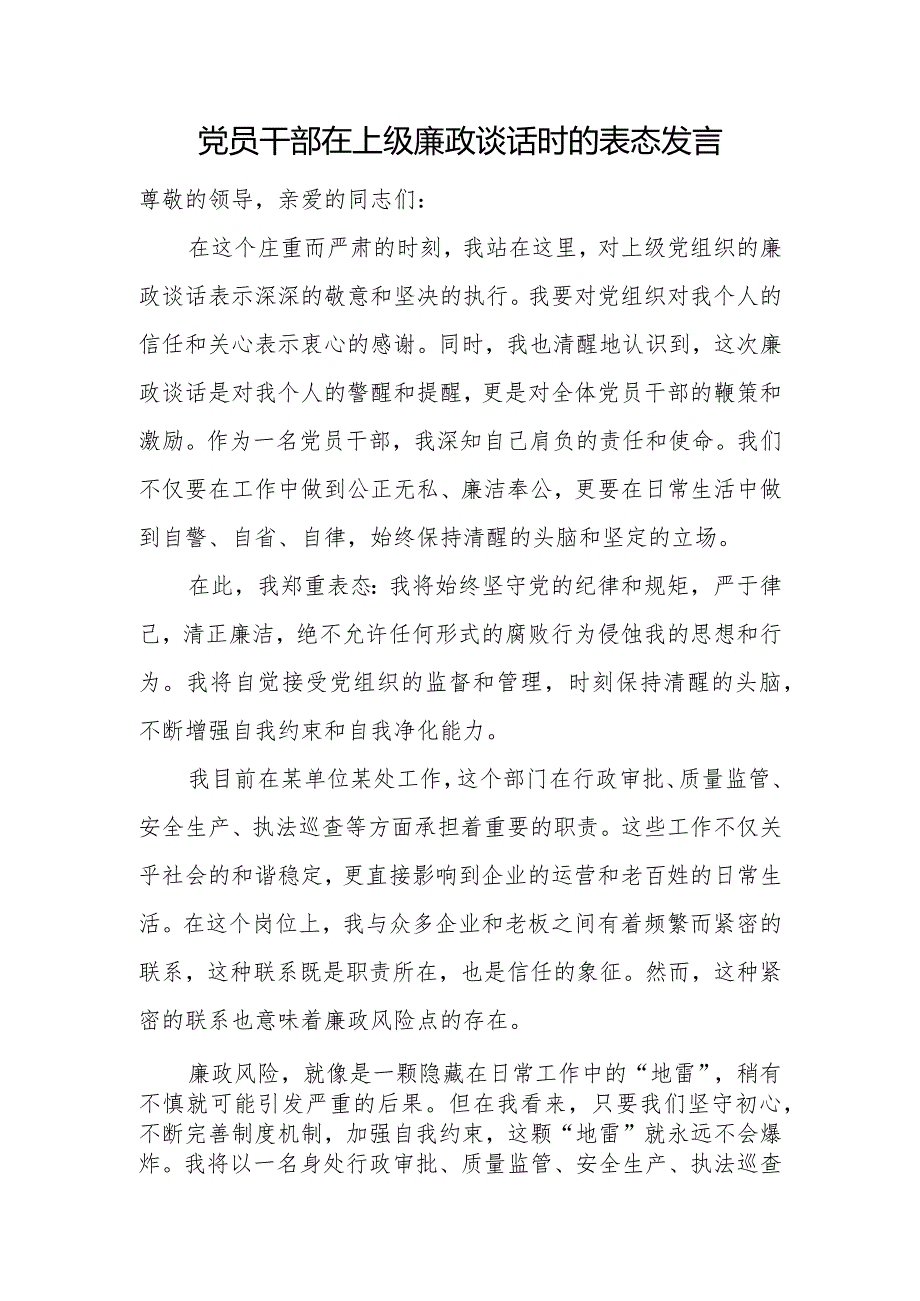 党员干部在上级廉政谈话时的表态发言
尊敬的领导，亲爱的同志们：
在这个庄重而严肃的时刻，我站在这里，对上级党组织的廉
政谈话表示深深的敬意和坚决的执行。我要对党组织对我个人的
信任和关心表示衷心的感谢。同时，我也清醒地认识到，这次廉
政谈话是对我个人的警醒和提醒，更是对全体党员干部的鞭策和
激励。作为一名党员干部，我深知自己肩负的责任和使命。我们
不仅要在工作中做到公正无私、廉洁奉公，更要在日常生活中做
到自警、自省、自律，始终保持清醒的头脑和坚定的立场。
在此，我郑重表态：我将始终坚守党的纪律和规矩，严于律
己，清正廉洁，绝不允许任何形式的腐败行为侵蚀我的思想和行
为。我将自觉接受党组织的监督和管理，时刻保持清醒的头脑，
不断增强自我约束和自我净化能力。
我目前在某单位某处工作，这个部门在行政审批、质量监管、
安全生产、执法巡查等方面承担着重要的职责。这些工作不仅关
乎社会的和谐稳定，更直接影响到企业的运营和老百姓的日常生
活。在这个岗位上，我与众多企业和老板之间有着频繁而紧密的
联系，这种联系既是职责所在，也是信任的象征。然而，这种紧
密的联系也意味着廉政风险点的存在。
廉政风险，就像是一颗隐藏在日常工作中的“地雷”，稍有
不慎就可能引发严重的后果。但在我看来，只要我们坚守初心，
不断完善制度机制，加强自我约束，这颗“地雷”就永远不会爆
炸。我将以一名身处行政审批、质量监管、安全生产、执法巡查